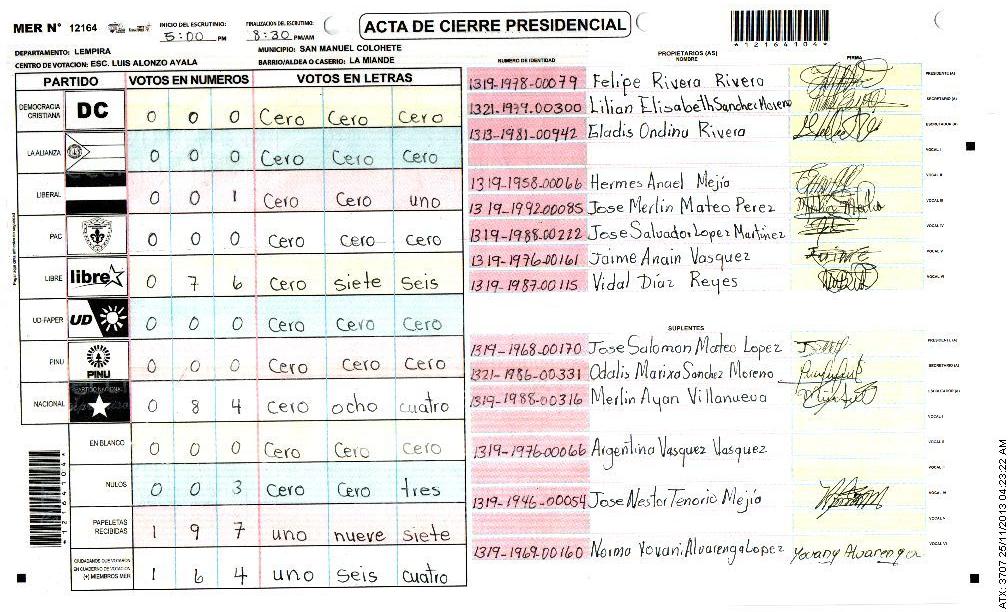 MER N° 12164
INICIO DEL ESCRUTINIO: 5:00 PM
FINALIZACION DEL ESCRUTINIO: 8:30 PM/AM
ACTA DE CIERRE PRESIDENCIAL
*12164104*
DEPARTAMENTO: LEMPIRA
MUNICIPIO: SAN MANUEL COLOHETE
CENTRO DE VOTACION: ESC. LUIS ALONZO AYALA
BARRIO/ALDEA O CASERIO: LA MIANDE
PARTIDO VOTOS EN NUMEROS VOTOS EN LETRAS
DEMOCRACIA CRISTIANA DC 0 0 0 Cero Cero Cero
LA ALIANZA 0 0 0 Cero Cero Cero
LIBERAL 0 0 1 Cero Cero uno
PAC 0 0 0 Cero Cero Cero
LIBRE libre 0 7 6 Cero siete seis
UD-FAPER UD 0 0 0 Cero Cero Cero
PINU PINU 0 0 0 Cero Cero Cero
NACIONAL 0 8 4 Cero ocho cuatro
EN BLANCO 0 0 0 Cero Cero Cero
NULOS 0 0 3 Cero Cero tres
PAPELETAS RECIBIDAS 1 9 7 uno nueve siete
CIUDADANOS QUE VOTARON EN CUADERNO DE VOTACION (+) MIEMBROS MER 1 6 4 uno seis cuatro
*12164104*
PROPIETARIOS (AS)
NUMERO DE IDENTIDAD NOMBRE FIRMA
1319-1978-00079 Felipe Rivera Rivera PRESIDENTE (A)
1321-1979-00300 Lilian Elisabeth Sanchez Moreno SECRETARIO (A)
1313-1981-00942 Eladis Ondina Rivera ESCRUTADOR (A)
VOCAL I
1319-1958-00066 Hermes Anael Mejía VOCAL II
1319-1992-00085 Jose Merlin Mateo Perez VOCAL III
1319-1988-00222 Jose Salvador Lopez Martinez VOCAL IV
1319-1976-00161 Jaime Anain Vasquez Jaime VOCAL V
1319-1987-00115 Vidal Díaz Reyes VOCAL VI
SUPLENTES
1319-1968-00170 Jose Salomon Mateo Lopez PRESIDENTE (A)
1321-1986-00331 Odalis Mariza Sanchez Moreno SECRETARIO (A)
1319-1988-00316 Merlin Ayan Villanueva ESCRUTADOR (A)
VOCAL I
1319-1976-00066 Argentina Vasquez Vasquez VOCAL II
1319-1946-00054 Jose Nestor Tenorio Mejía
1319-1969-00160 Norma Yovani Alvarenga Lopez Yovany Alvarenga VOCAL VI
ATX: 3707 25/11/2013 04:23:22 AM